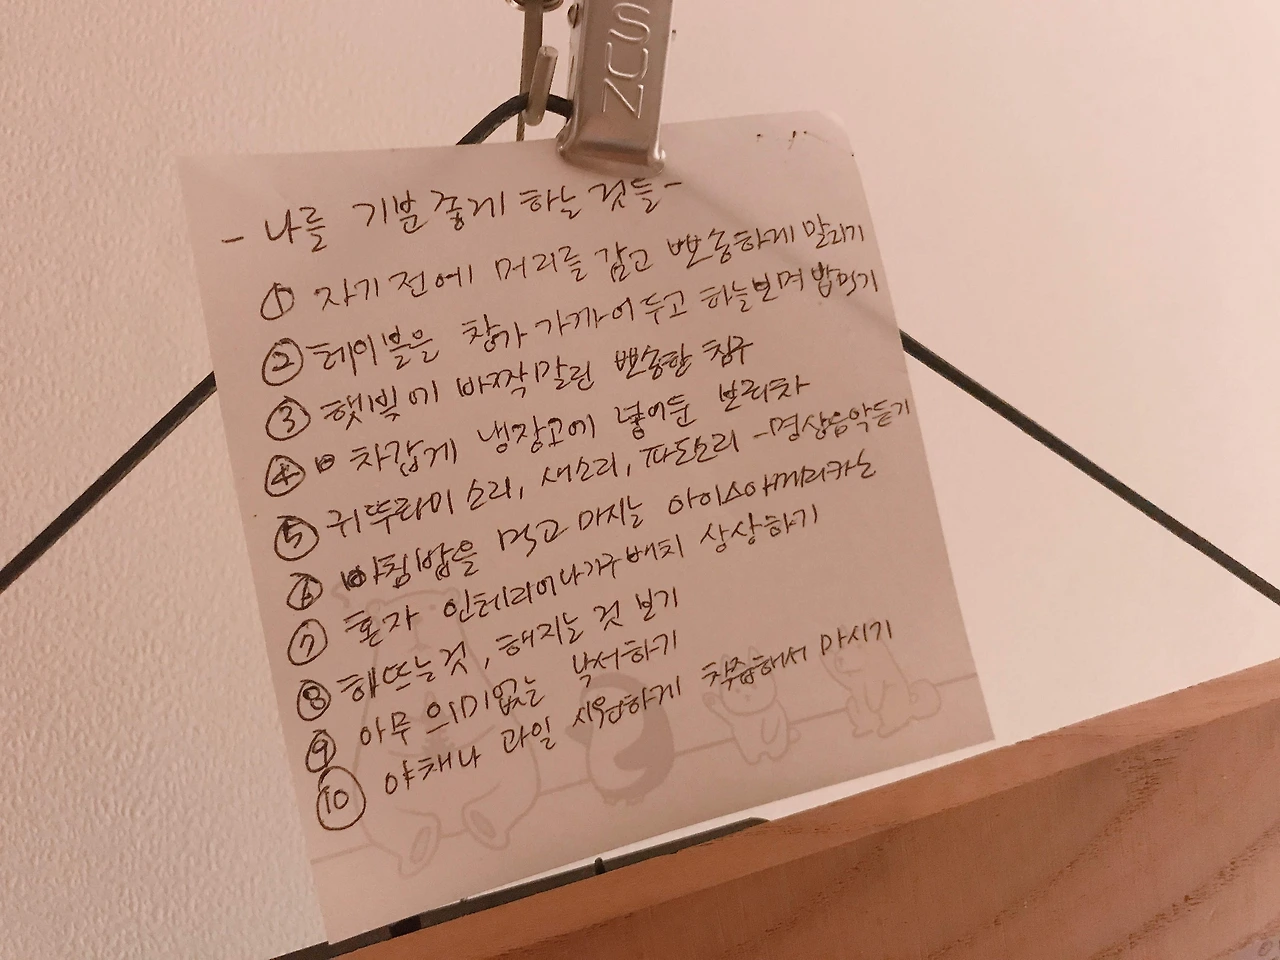 SUN
- 나를 기분좋게 하는 것들 -
① 자기전에 머리를 감고 뽀송하게 말리기
② 테이블을 창가 가까이 두고 하늘보며 밥먹기
③ 햇빛에 바짝말린 뽀송한 침구
④ 차갑게 냉장고에 넣어둔 보리차
⑤ 귀뚜라미 소리, 새소리, 파도소리 - 명상음악듣기
⑥ 아침밥을 먹고 마시는 아이스아메리카노
⑦ 혼자 인테리어나 가구배치 상상하기
⑧ 해뜨는것, 해지는 것 보기
⑨ 아무 의미없는 낙서하기
⑩ 야채나 과일 시원하게 착즙해서 마시기